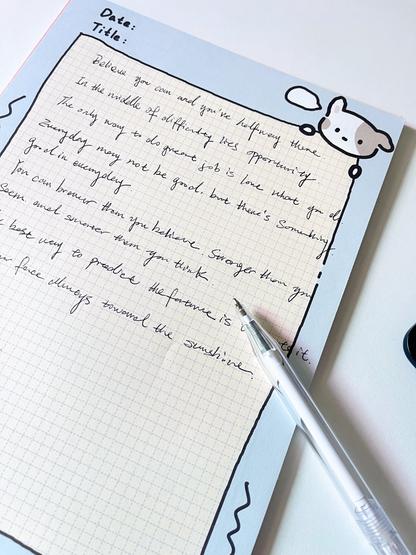 Date:
Title:
Believe you can and you've halfway there
In the middle of difficulty lies opportunity.
The only way to do great job is love what you do
Everyday may not be good. but there's something
good in everyday
You can braver than you believe. Stronger than you
Seem and smarter than you think
best way to predict the is it.
face always toward the sunshine.